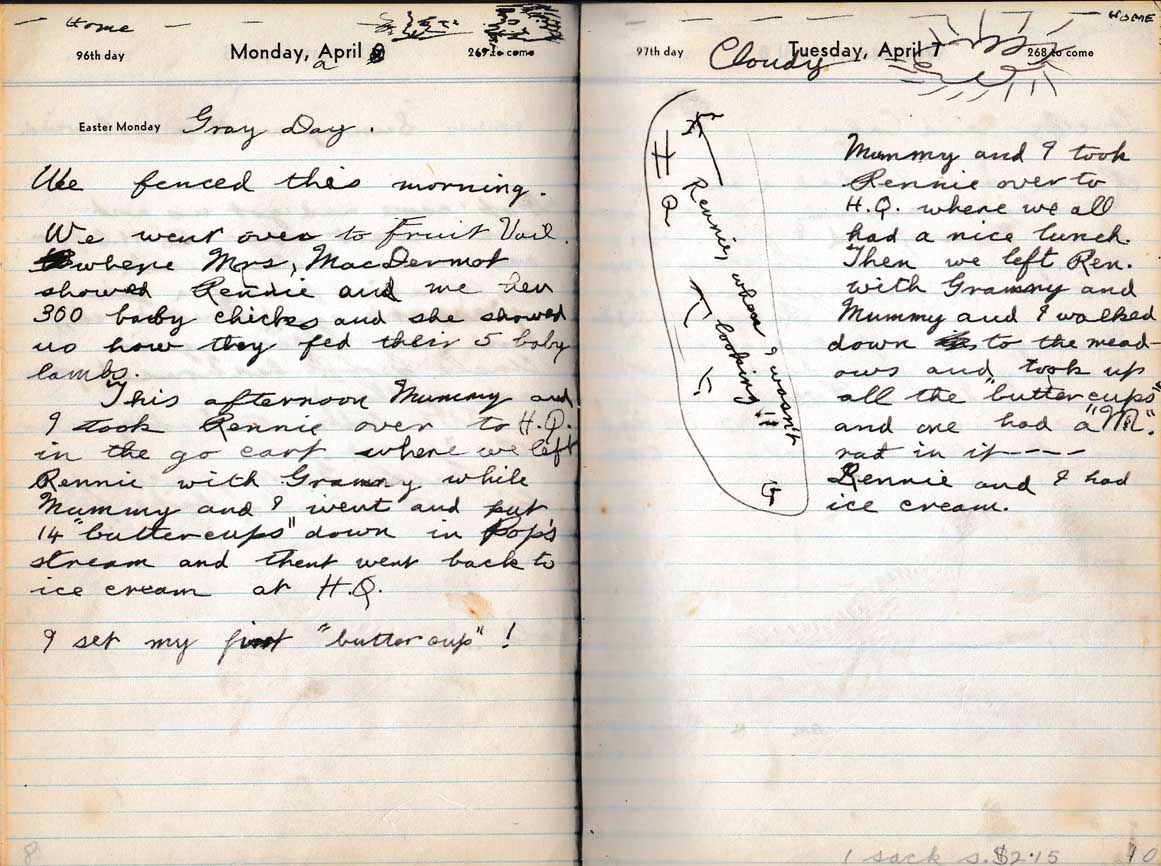 Home
96th day
Monday, April
269 to come
Easter Monday Gray Day.
We fenced this morning.
We went over to Fruit Vail.
where Mrs, MacDermot
showed Rennie and me her
300 baby chicks and she showed
us how they fed their 5 baby
lambs.
This afternoon Mummy and
I took Rennie over to H.Q.
in the go cart where we left
Rennie with Grammy while
Mummy and I went and put
14 "buttercups" down in Pop's
stream and then went back to
ice cream at H.Q.
I set my first "buttercup" !
8
HOME
97th day
Cloudy
Tuesday, April 7
268 to come
HQ
Rennie, when I wasn't
looking!!
Mummy and I took
Rennie over to
H.Q. where we all
had a nice lunch.
Then we left Ren.
with Grammy and
Mummy and I walked
down to the mead-
ows and took up
all the "buttercups"
and one had a "M".
rat in it----
Rennie and I had
ice cream.
1 sack s. $2.15
10